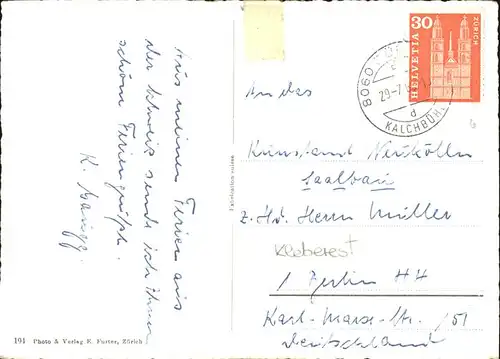 Aus meinen Ferien aus
der Schweiz sende ich Ihnen
schöne Feriengrüße.
K.
Fabrication suisse
194 Photo & Verlag E. Furter, Zürich
30
HELVETIA
ZÜRICH
8060
29-7
d
KALCHBÜH
An das
Kunstamt Neukölln
Saalbau
z. Hd. Herrn Müller
Kleberest
1 Berlin 44
Karl-Marx-Str. 151
Deutschland